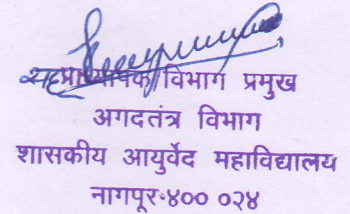 सहप्राध्यापक विभाग प्रमुख
अगदतंत्र विभाग
शासकीय आयुर्वेद महाविद्यालय
नागपूर-४०० ०२४